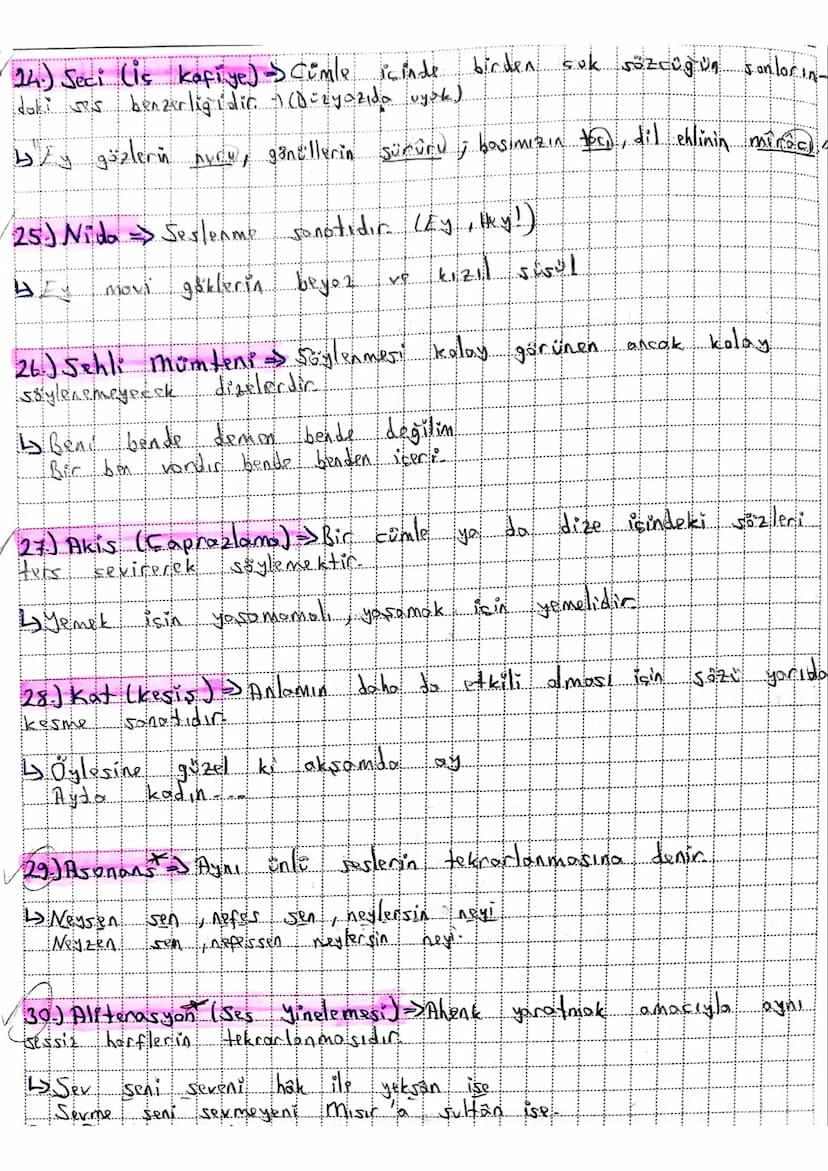 24.) Seci (İç kafiye) → Cümle içinde birden çok sözcüğün sonların-
daki ses benzerligidir → (Düzyazıda uyak)
↳ Ey gözlerin nuru, gönüllerin sürûru; başımızın tâcı, dil ehlinin mîrâcı.
25.) Nida ⇒ Seslenme sanatıdır (Ey, Hey!)
↳ Ey mavi göklerin beyaz ve kızıl süsü!
26.) Sehli mümteni ⇒ Söylenmesi kolay görünen ancak kolay
söylenemeyecek dizelerdir.
↳ Beni bende demen bende değilim
Bir ben vardır bende benden içeri.
27.) Akis (Çaprazlama) ⇒ Bir cümle ya da dize içindeki sözleri
ters çevirerek söylemektir.
↳ Yemek için yaşamamalı, yaşamak için yemelidir.
28.) Kat (kesiş) ⇒ Anlamın daha da etkili olması için sözü yarıda
kesme sanatıdır.
↳ Öylesine güzel ki akşamda ay
Ayda kadın....
29.) Asonans* ⇒ Aynı ünlü seslerin tekrarlanmasına denir.
↳ Neysen sen, nefes sen, neylersin neyi
Neyzen sen, nefessen neylersin neyi.
30.) Aliterasyon* (Ses yinelemesi) ⇒ Ahenk yaratmak amacıyla aynı
sessiz harflerin tekrarlanmasıdır.
↳ Sev seni seveni hâk ile yeksân ise
Sevme seni sevmeyeni Mısır'a sultân ise.